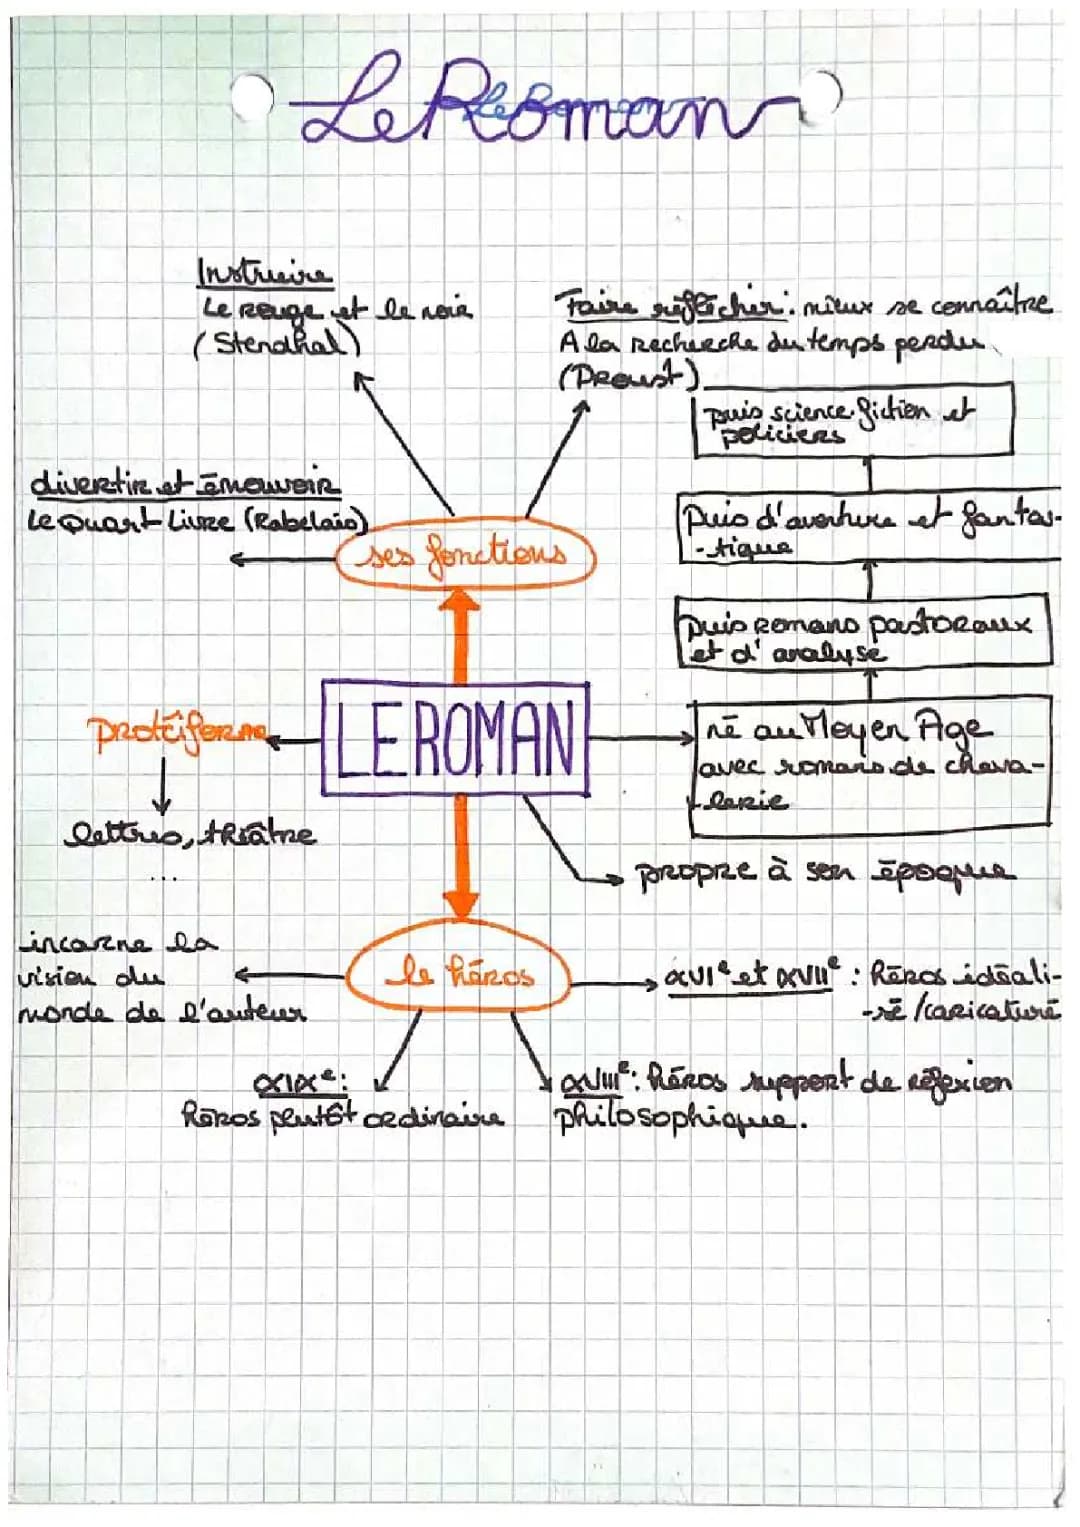 Le Roman
Le Roman
Instruire
Le rouge et le noir
(Stendhal)
Faire réflechir : mieux se connaître
A la recherche du temps perdu
(Proust)
puis science fiction et
policiers
divertir et émouvoir
Le Quart Livre (Rabelais)
ses fonctions
Puis d'aventure et fantas-
-tique
puis romans pastoraux
et d'analyse
protéiforme
LE ROMAN
né au Moyen Age
avec romans de cheva-
-lerie
lettres, théâtre
...
propre à son époque
incarne la
vision du
monde de l'auteur
le héros
XVIe et XVIIe : héros idéali-
-sé / caricaturé
XIXe :
héros plutôt ordinaire
XVIIIe : héros support de réflexion
philosophique.